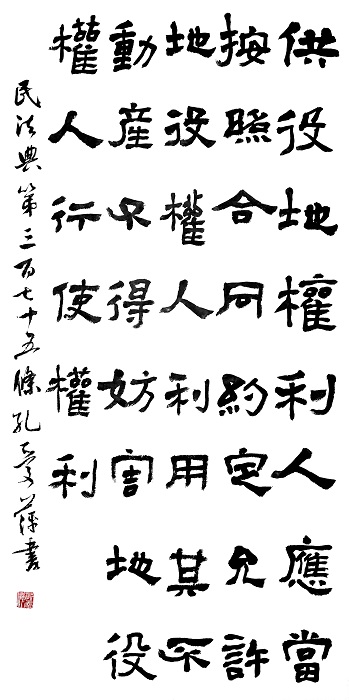 供役地權利人應當
按照合同約定允許
地役權人利用其不
動產不得妨害地役
權人行使權利
民法典第三百七十五條孔書